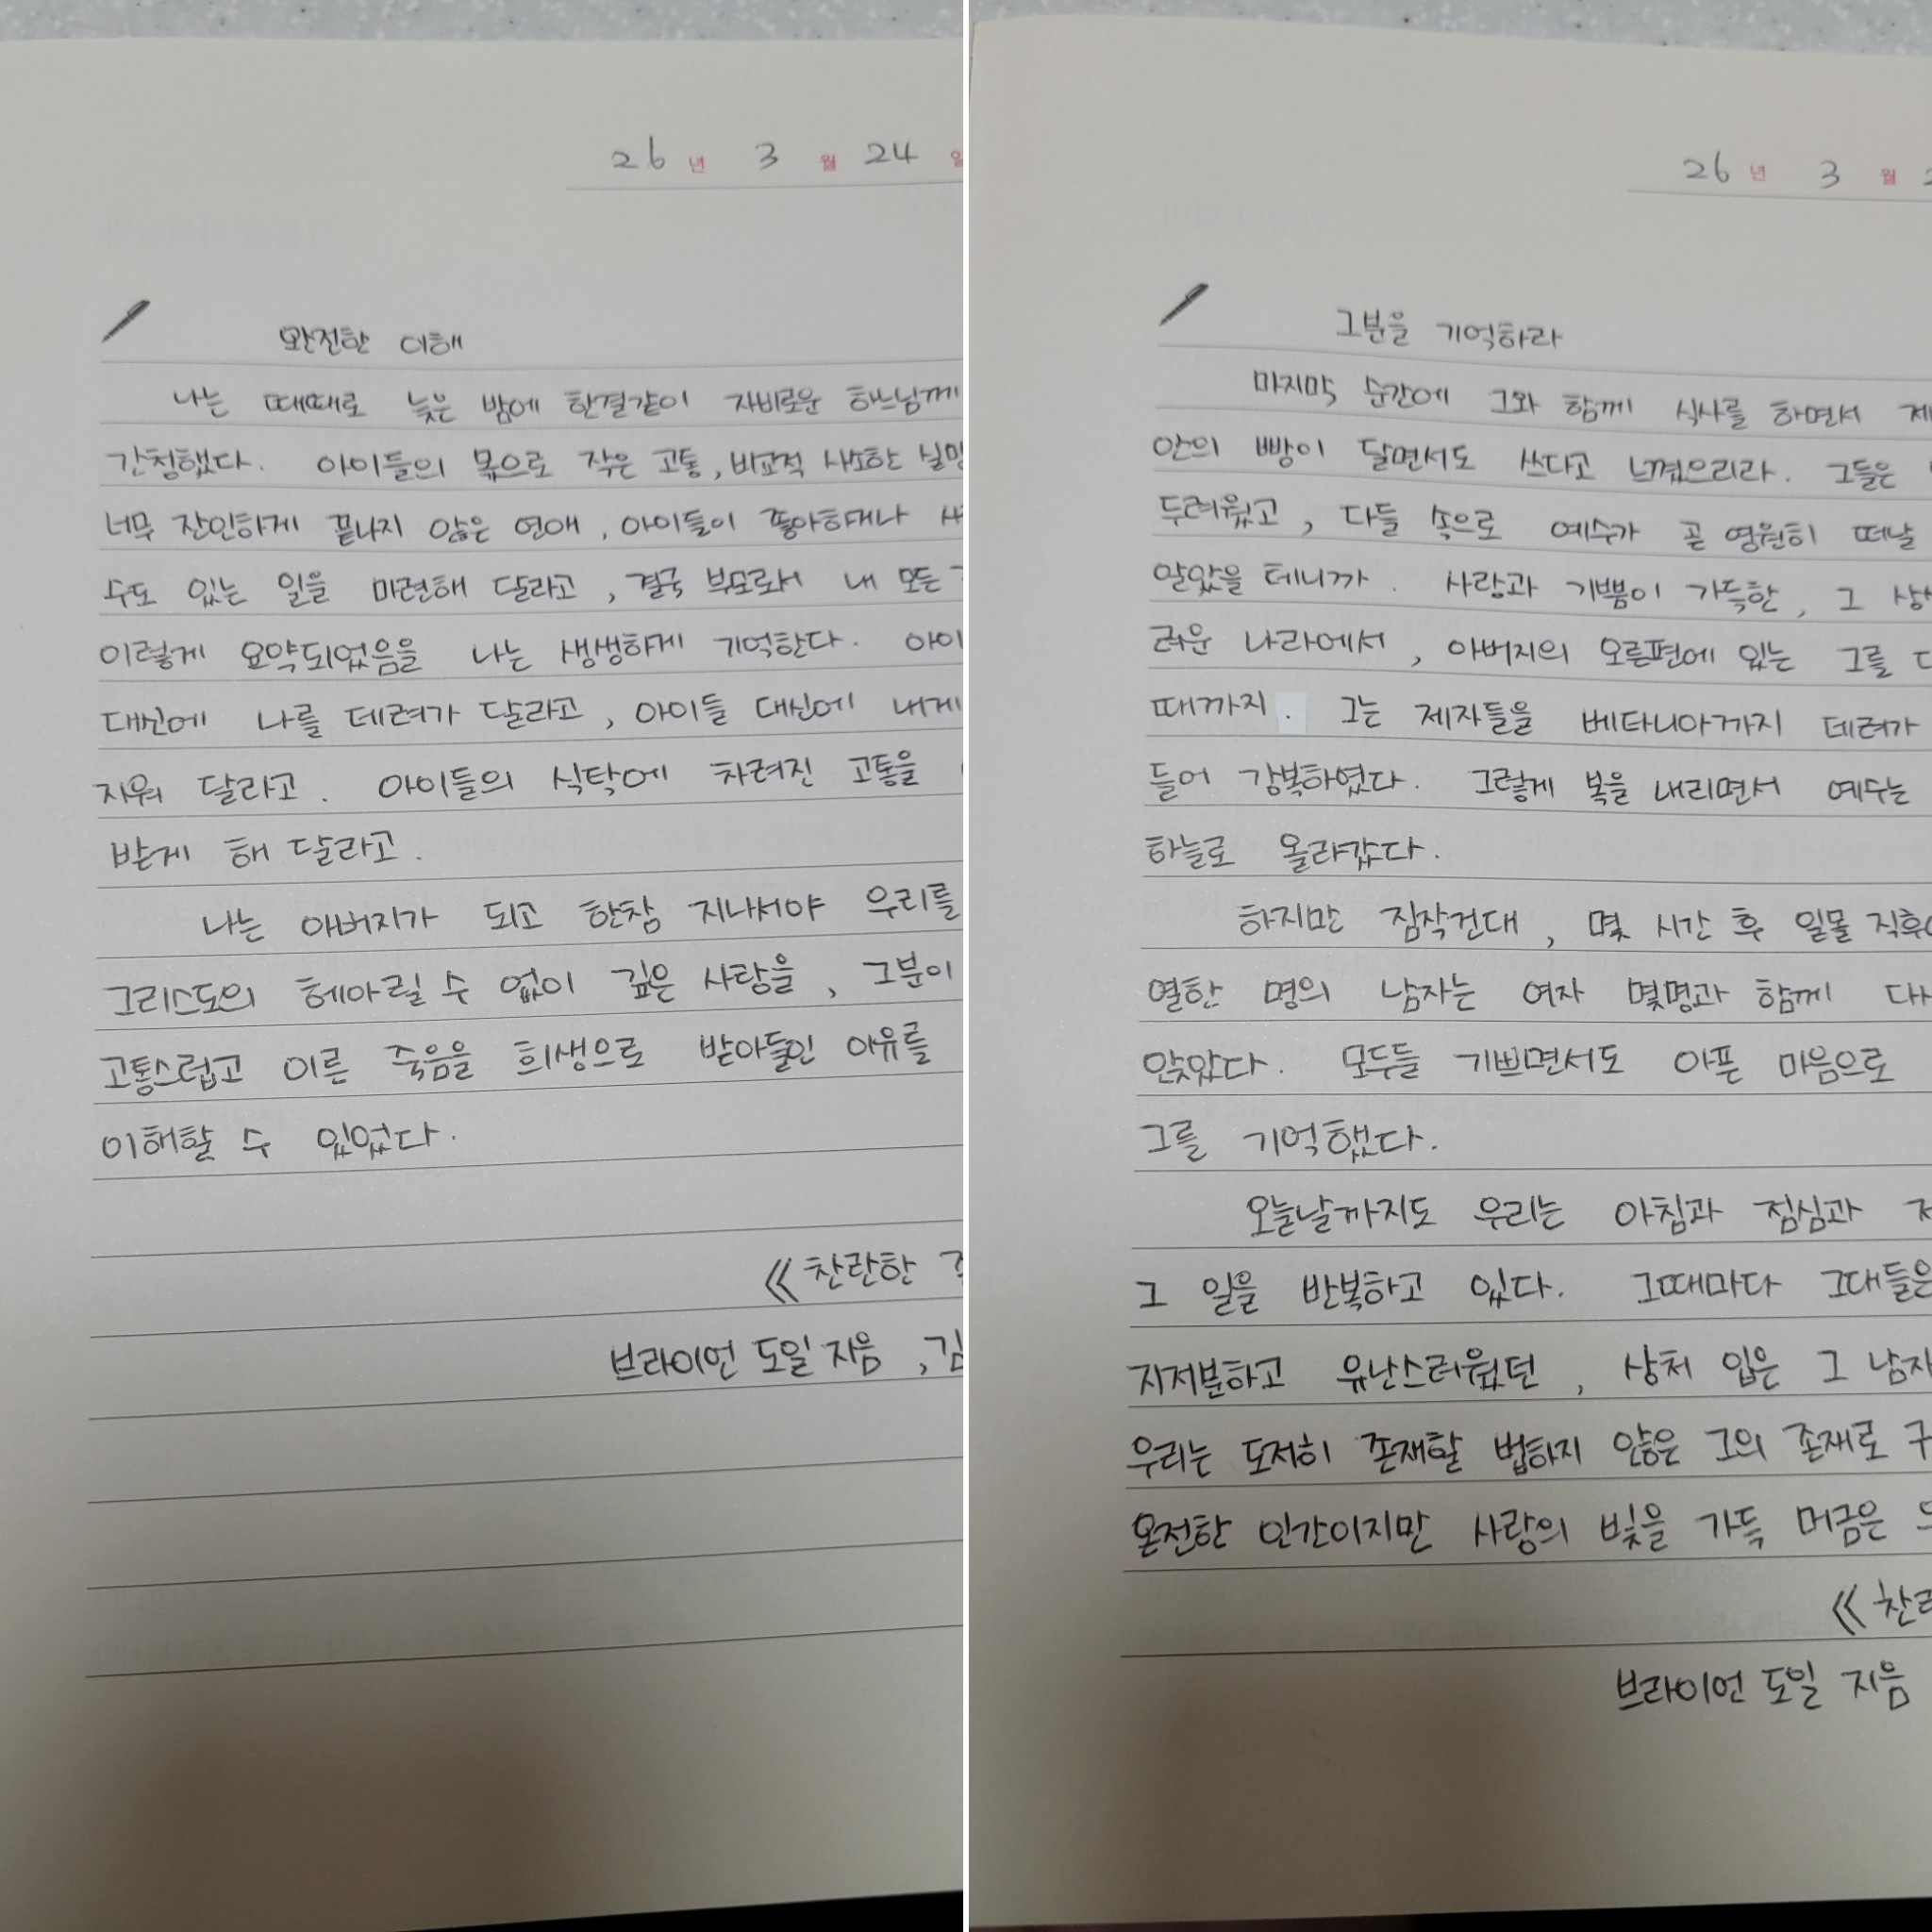 26 년 3 월 24 일
완전한 이해
나는 때때로 늦은 밤에 한결같이 자비로운 하느님께
간청했다. 아이들의 몫으로 작은 고통, 비교적 사소한 실망
너무 잔인하게 끝나지 않은 연애, 아이들이 좋아하거나
수도 있는 일을 마련해 달라고, 결국 부모로서 내 모든
이렇게 요약되었음을 나는 생생하게 기억한다. 아이
대신에 나를 데려가 달라고, 아이들 대신에 내게
지워 달라고. 아이들의 식탁에 차려진 고통을
받게 해 달라고.
나는 아버지가 되고 한참 지나서야 우리를
그리스도의 헤아릴 수 없이 깊은 사랑을, 그분이
고통스럽고 이른 죽음을 희생으로 받아들인 이유를
이해할 수 있었다.
《찬란한
브라이언 도일 지음, 김
26 년 3 월
그분을 기억하라
마지막 순간에 그와 함께 식사를 하면서 제
안의 빵이 달면서도 쓰다고 느꼈으리라. 그들은
두려웠고, 다들 속으로 예수가 곧 영원히 떠날
알았을 테니까. 사랑과 기쁨이 가득한, 그
러운 나라에서, 아버지의 오른편에 있는 그를
때까지. 그는 제자들을 베타니아까지 데려가
들어 강복하였다. 그렇게 복을 내리면서 예수는
하늘로 올라갔다.
하지만 짐작건대, 몇 시간 후 일몰 직후
열한 명의 남자는 여자 몇명과 함께 다시
앉았다. 모두들 기쁘면서도 아픈 마음으로
그를 기억했다.
오늘날까지도 우리는 아침과 점심과 저
그 일을 반복하고 있다. 그때마다 그대들은
지저분하고 유난스러웠던, 상처 입은 그 남자
우리는 도저히 존재할 법하지 않은 그의 존재로 구
온전한 인간이지만 사랑의 빛을 가득 머금은
《찬란
브라이언 도일 지음